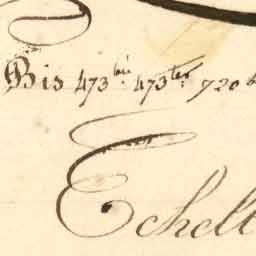 Bis 473 bis 473 ter 720 b
Echell